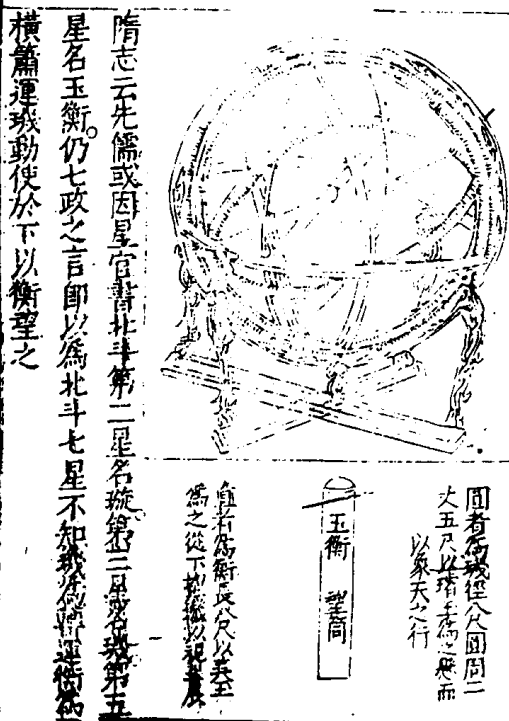 圓者為璣徑八尺圓周二
丈五尺以璿玉為之懸而
以象天之行
玉衡 望筒
直者為衡長八尺以美玉
為之從下
隋志云先儒或因星官書北斗第二星名璇第三星名璣第五
星名玉衡仍七政之言即以為北斗七星不知璣為運衡為
橫簫運璣動使於下以衡望之